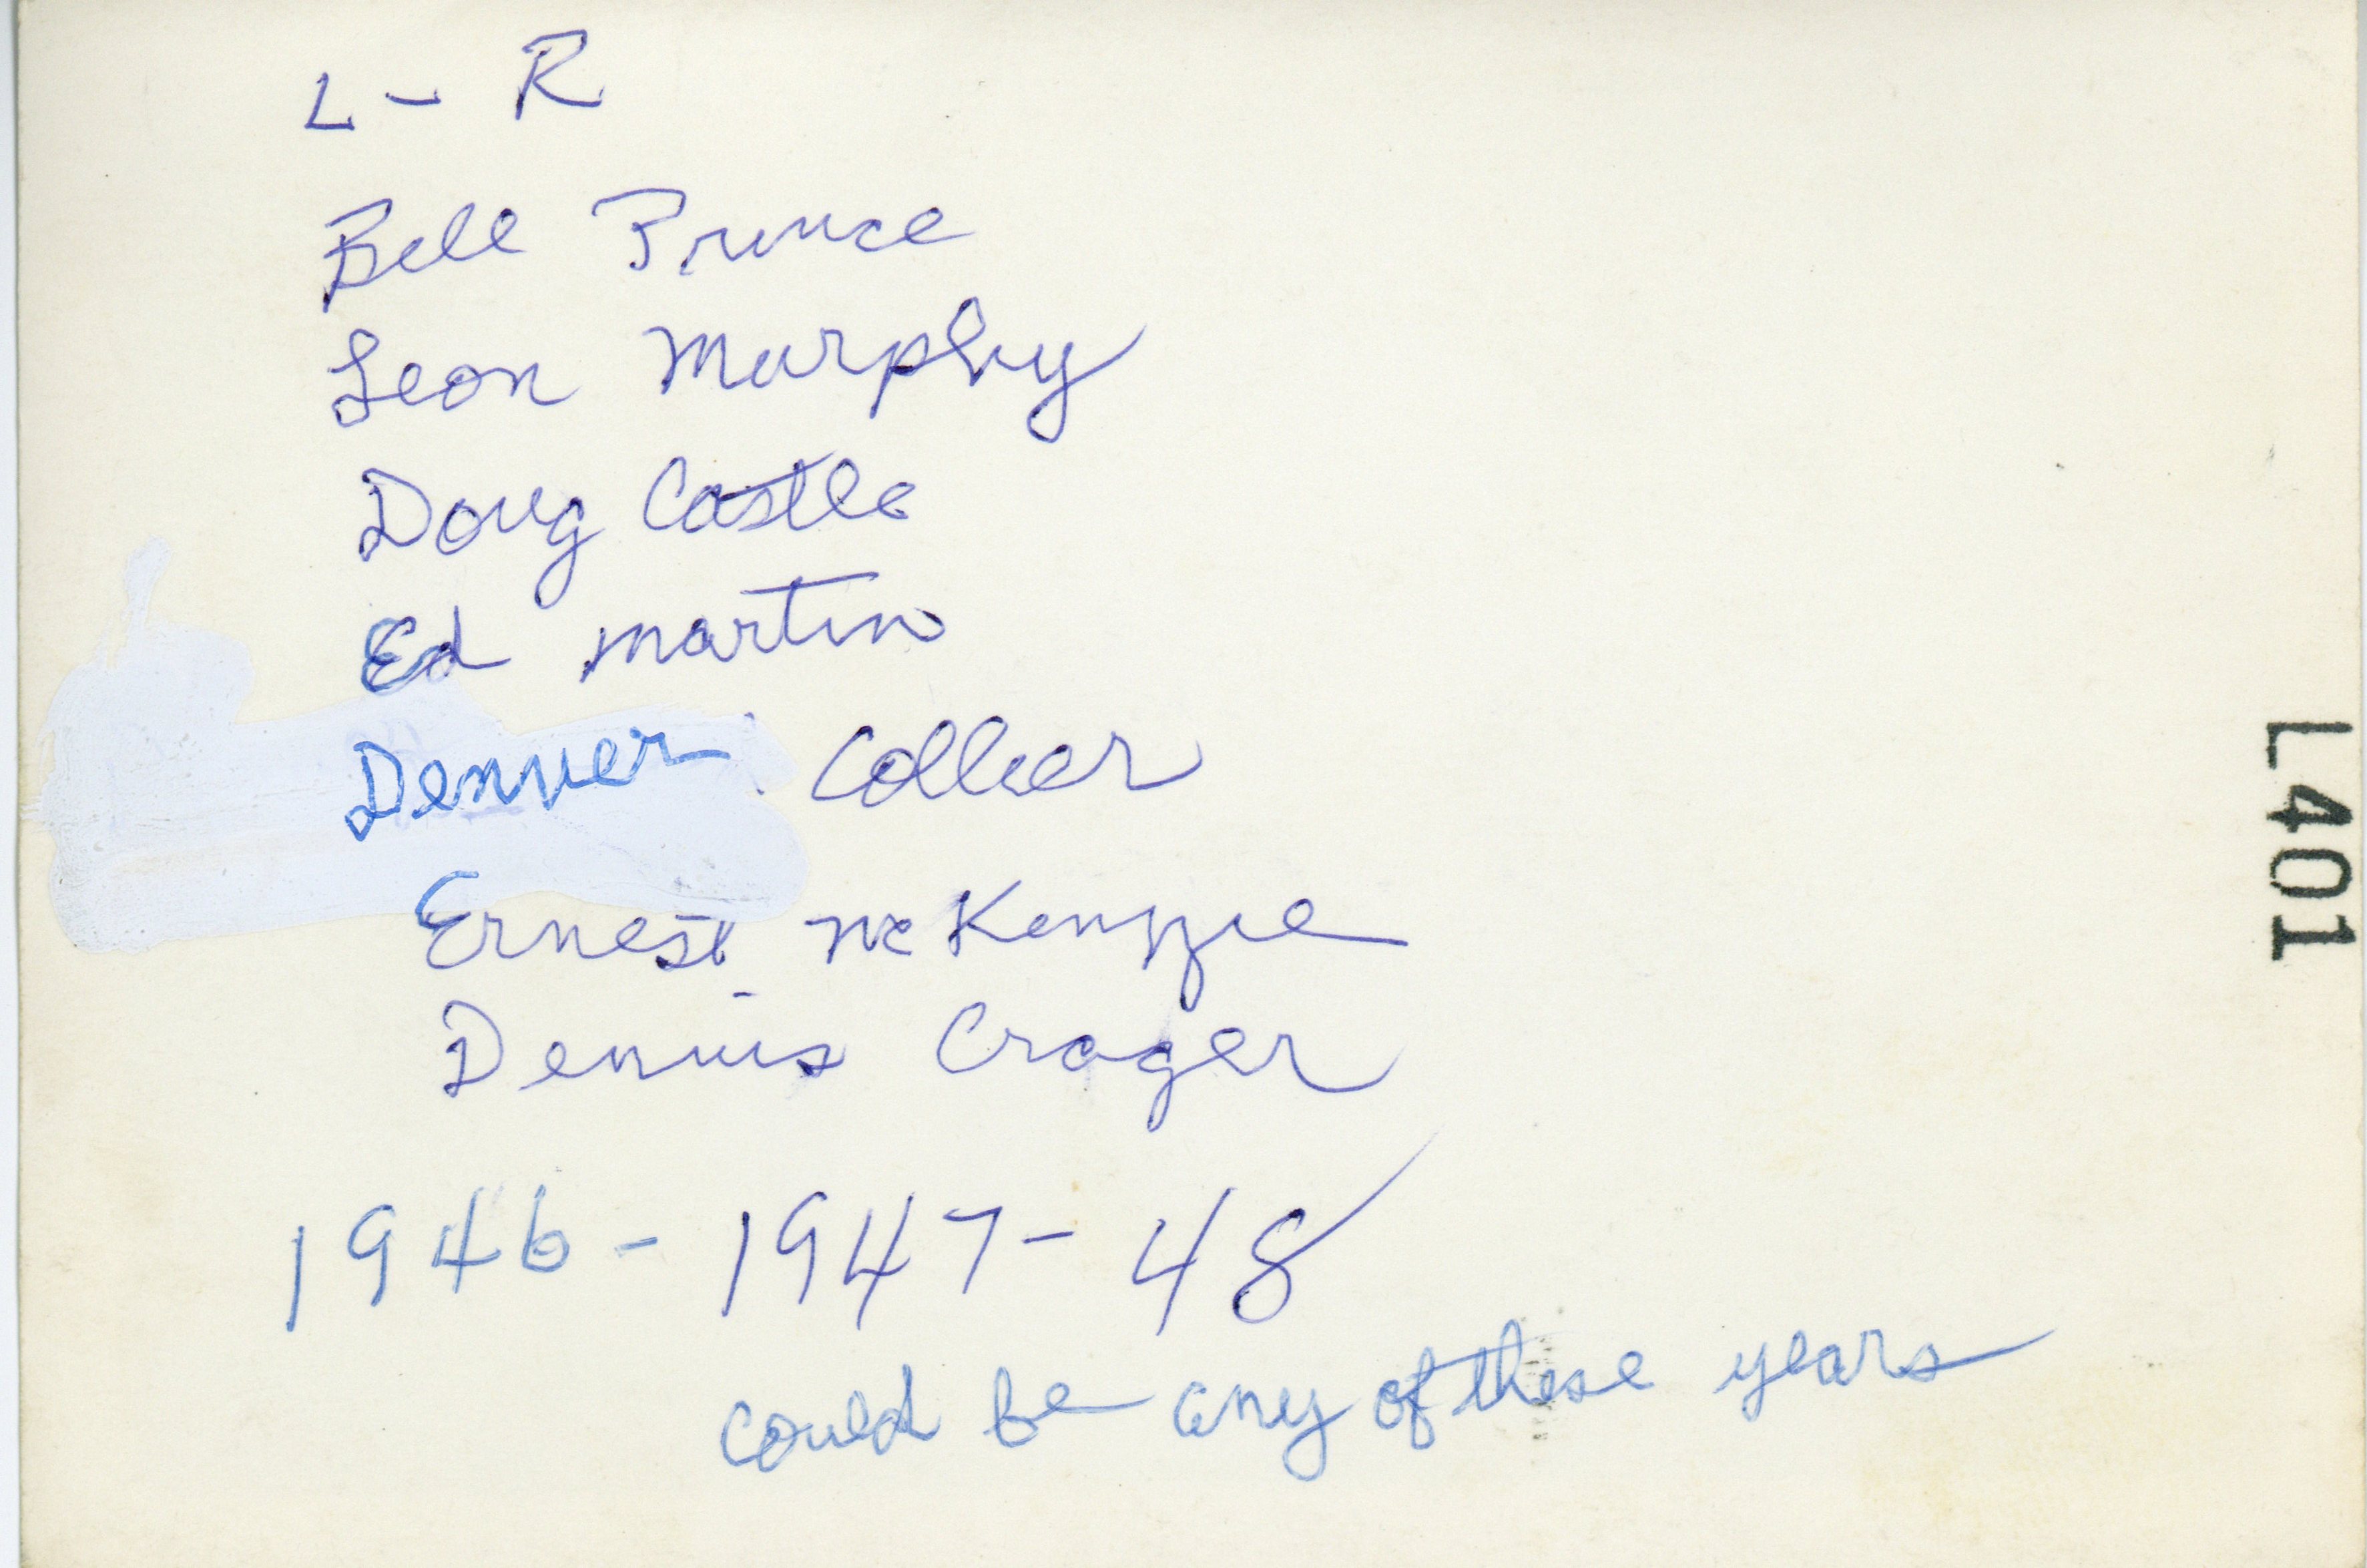 L - R
Bill Prince
Leon Murphy
Doug Castle
Ed Martin
Denver Collier
Ernest McKenzie
Dennis Crager
1946 - 1947 - 48
could be any of these years
L401